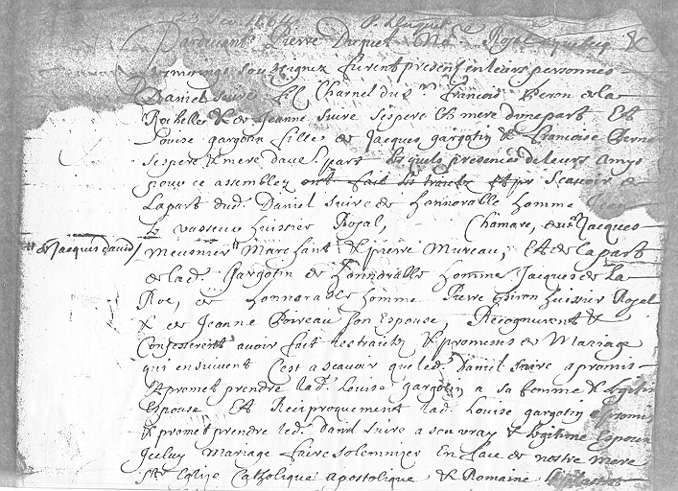 Pardevant Pierre Duquet No.re Royal a quebeq &
temoings soussignez furent present en leurs personnes
Daniel suire fils Charnel du sr François Peron de la
Rochelle & de Jeanne suire ses pere Et mere d'une part Et
Louise gargotin fille de Jacques gargotin & francoise Berna
ses pere & mere d'autre part lesquels presences de leurs amys
pour ce assemblez ont fait les traictez Et pr Scavoir de
La part dud. Daniel suire de honnorable homme Jean
Le vasseur huissier Royal, Chamare, de Jacques
de Jacques david / meusnier Marchant & pierre Mureau, Et de la part
de lad. Gargotin de honnorable homme Jacques de La
Roe, de honnorable homme Pierre Biron huissier Royal
& de Jeanne Poireau son Espouse Recognurent &
Confesserent avoir fait les traictez & promesses de Mariage
qui en suivent C'est a scavoir que led. Daniel suire a promis
& promet prendre lad. Louise Gargotin a sa femme & legitime
Espouse Et Reciproquement lad. Louise gargotin a promis
& promet prendre led. Daniel suire a son vray & legitime Espoux
Iceluy Mariage faire solemniser En face de nostre mere
Ste Eglise Catholique apostolique & Romaine